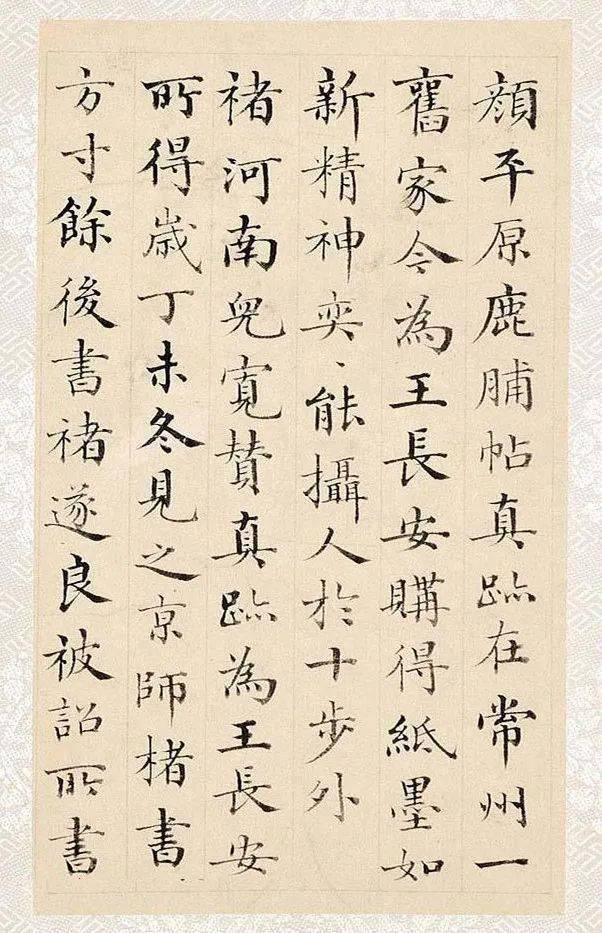 顔平原鹿脯帖真跡在常州一
舊家今為王長安購得紙墨如
新精神奕、能攝人於十步外
褚河南兒寬賛真跡為王長安
所得嵗丁未冬見之京師楮書
方寸餘後書褚遂良被詔所書